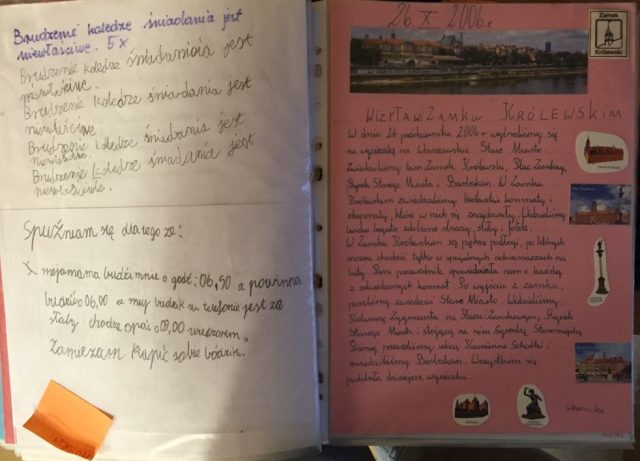 Brudzenie koledze śniadania jest
niewłaściwe. 5x
Brudzenie koledze śniadania jest
niewłaściwe.
Brudzenie koledze śniadania jest
niewłaściwe
Brudzenie koledze śniadania jest
Brudzenie koledze śniadania jest
niewłaściwe.
Spuźniam się dlatego że:
moja mama budzi mnie o godź: 06,50 a powinna
budzić o 06,00 a muj budzik w telefonie jest za
słaby chodze spać o 09,00 wieczorem.
Zamieżam kupić sobie
26.X 2006r.
Zamek
Królewski
WIZYTA W ZAMKU KRÓLEWSKIM
W dniu 26 października 2006r wybraliśmy się
na wycieczkę na Warszawskie Stare Miasto.
Zwiedziliśmy tam Zamek Królewski, Plac Zamkowy,
Rynek Starego Miasta i Barbakan. W Zamku
Królewskim zwiedzaliśmy królewskie komnaty i
eksponaty, które w nich się znajdowały. Widzieliśmy
bardzo bogato zdobione obrazy, stoły i fotele.
W Zamku Królewskim są piękne podłogi, po których
można chodzić tylko w specjalnych ochraniaczach na
buty. Pani przewodnik opowiedziała nam o każdej
z odwiedzonych komnat. Po wyjściu z zamku,
poszliśmy zwiedzać Stare Miasto. Widzieliśmy
Kolumnę Zygmunta na Placu Zamkowym, Rynek
Starego Miasta i stojącą na nim Syrenkę
Później przeszliśmy ulicą Kamienne Schodki i
zwiedziliśmy Barbakan. Wszystkim się
podobała dzisiejsza wycieczka.
Weronika